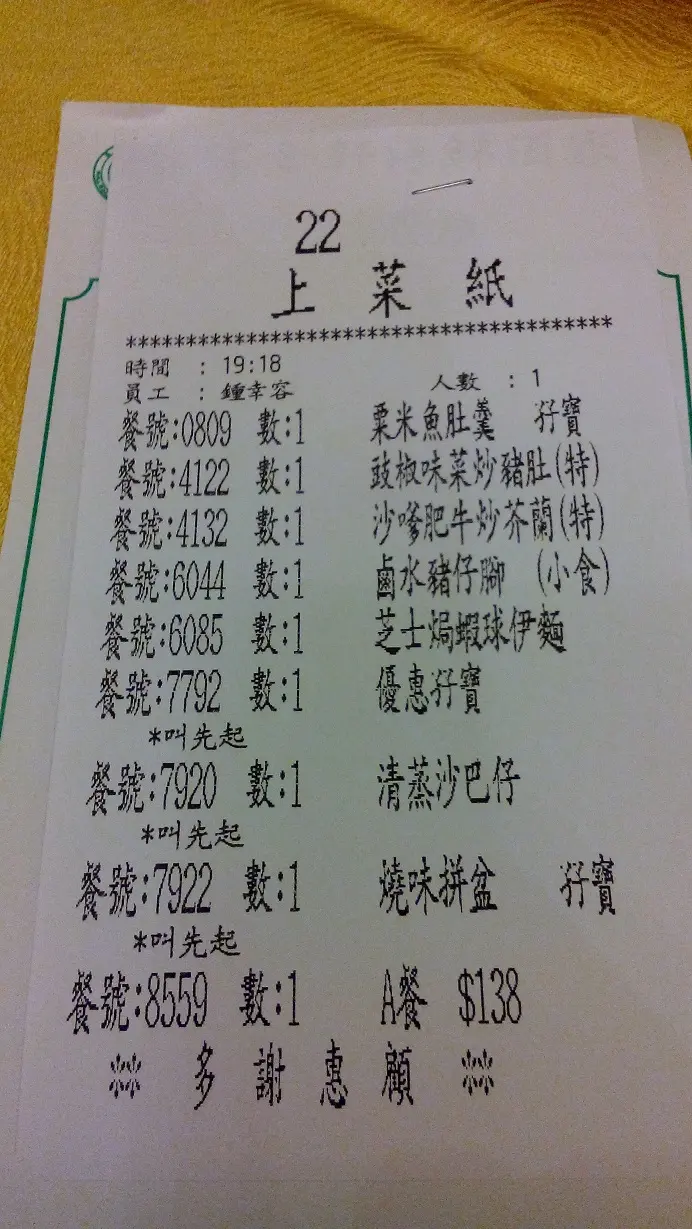 22
上菜紙
****************************************
時間 : 19:18
員工 : 鍾幸容 人數 : 1
餐號:0809 數:1 粟米魚肚羹 孖寶
餐號:4122 數:1 豉椒味菜炒豬肚(特)
餐號:4132 數:1 沙嗲肥牛炒芥蘭(特)
餐號:6044 數:1 鹵水豬仔腳 (小食)
餐號:6085 數:1 芝士焗蝦球伊麵
餐號:7792 數:1 優惠孖寶
*叫先起
餐號:7920 數:1 清蒸沙巴仔
*叫先起
餐號:7922 數:1 燒味拼盆 孖寶
*叫先起
餐號:8559 數:1 A餐 $138
※ 多謝惠顧 ※